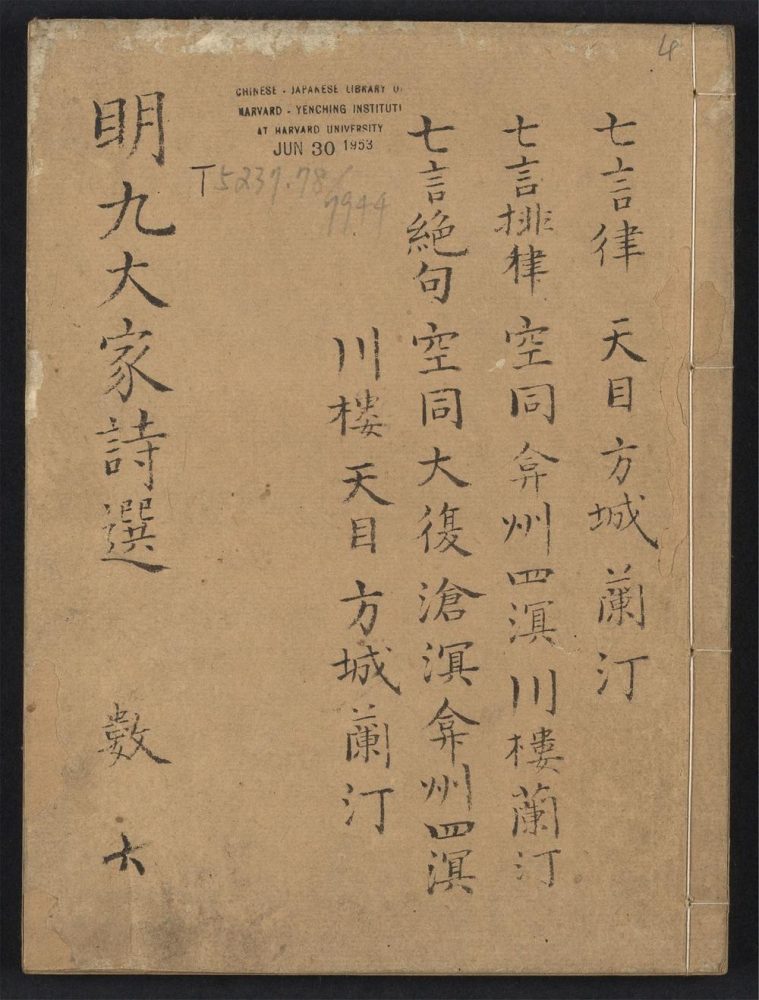 4
七言律 天目 方城 蘭汀
七言排律 空同 弇州 四溟 川樓 蘭汀
七言絕句 空同 大復 滄溟 弇州 四溟
川樓 天目 方城 蘭汀
CHINESE - JAPANESE LIBRARY O
HARVARD - YENCHING INSTITUT
AT HARVARD UNIVERSITY
JUN 30 1953
T5237.78/
7944
明九大家詩選 數 六